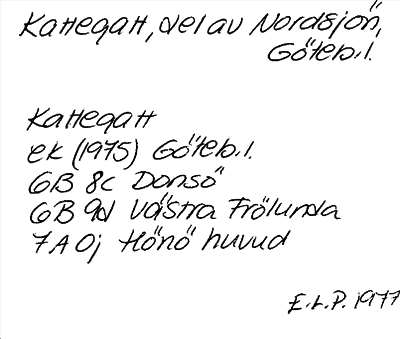 Kattegatt, del av Nordsjön,
Göteb.l.
Kattegatt
ek (1975) Göteb.l.
6B 8c Donsö
6B 9d Västra Frölunda
7A 0j Hönö huvud
E.L.P. 1977